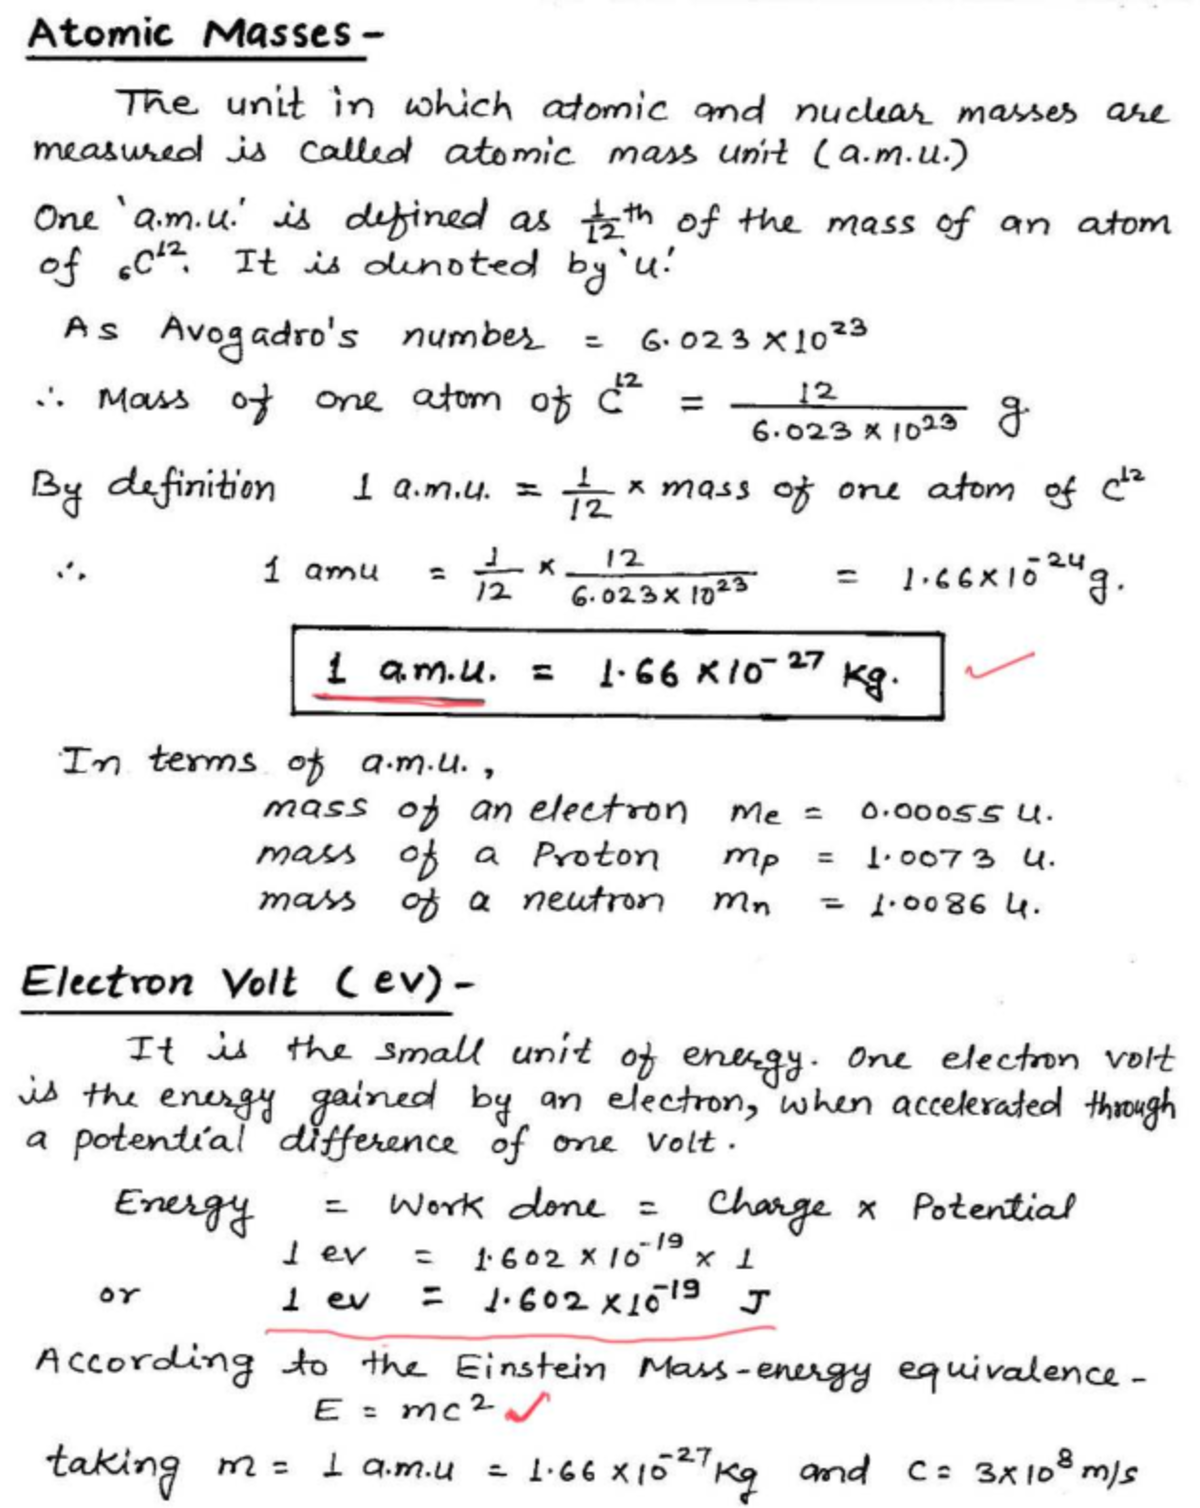 Atomic Masses -
The unit in which atomic and nuclear masses are
measured is called atomic mass unit (a.m.u.)
One 'a.m.u.' is defined as 1/12 th of the mass of an atom
of ₆C¹². It is denoted by 'u.'
As Avogadro's number = 6.023 × 10²³
∴ Mass of one atom of C¹² = 12 / 6.023 × 10²³ g.
By definition 1 a.m.u. = 1/12 × mass of one atom of C¹²
∴ 1 amu = 1/12 × 12 / 6.023 × 10²³ = 1.66 × 10⁻²⁴ g.
1 a.m.u. = 1.66 × 10⁻²⁷ Kg.
In terms of a.m.u.,
mass of an electron me = 0.00055 u.
mass of a Proton mp = 1.0073 u.
mass of a neutron mn = 1.0086 u.
Electron Volt (ev) -
It is the small unit of energy. One electron volt
is the energy gained by an electron, when accelerated through
a potential difference of one volt.
Energy = Work done = Charge × Potential
1 ev = 1.602 × 10⁻¹⁹ × 1
or 1 ev = 1.602 × 10⁻¹⁹ J
According to the Einstein Mass-energy equivalence -
E = mc²
taking m = 1 a.m.u = 1.66 × 10⁻²⁷ Kg and C = 3×10⁸ m/s